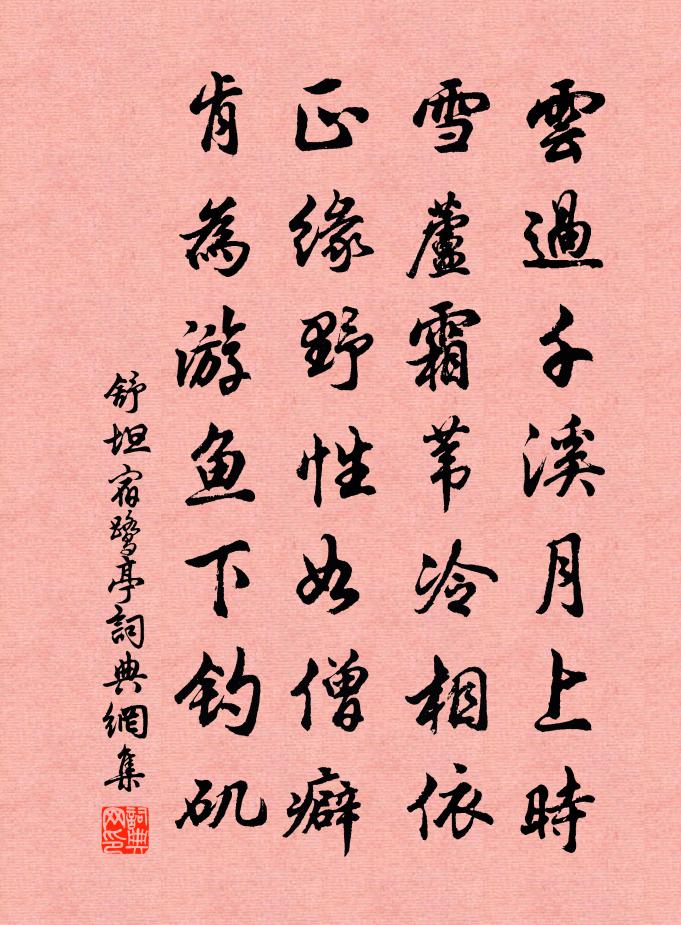 雲過千溪月上時
雪蘆霜葦冷相依
正緣野性如僧癖
肯為游魚下釣矶
舒坦宿鹭亭詞典網集
詞典网印